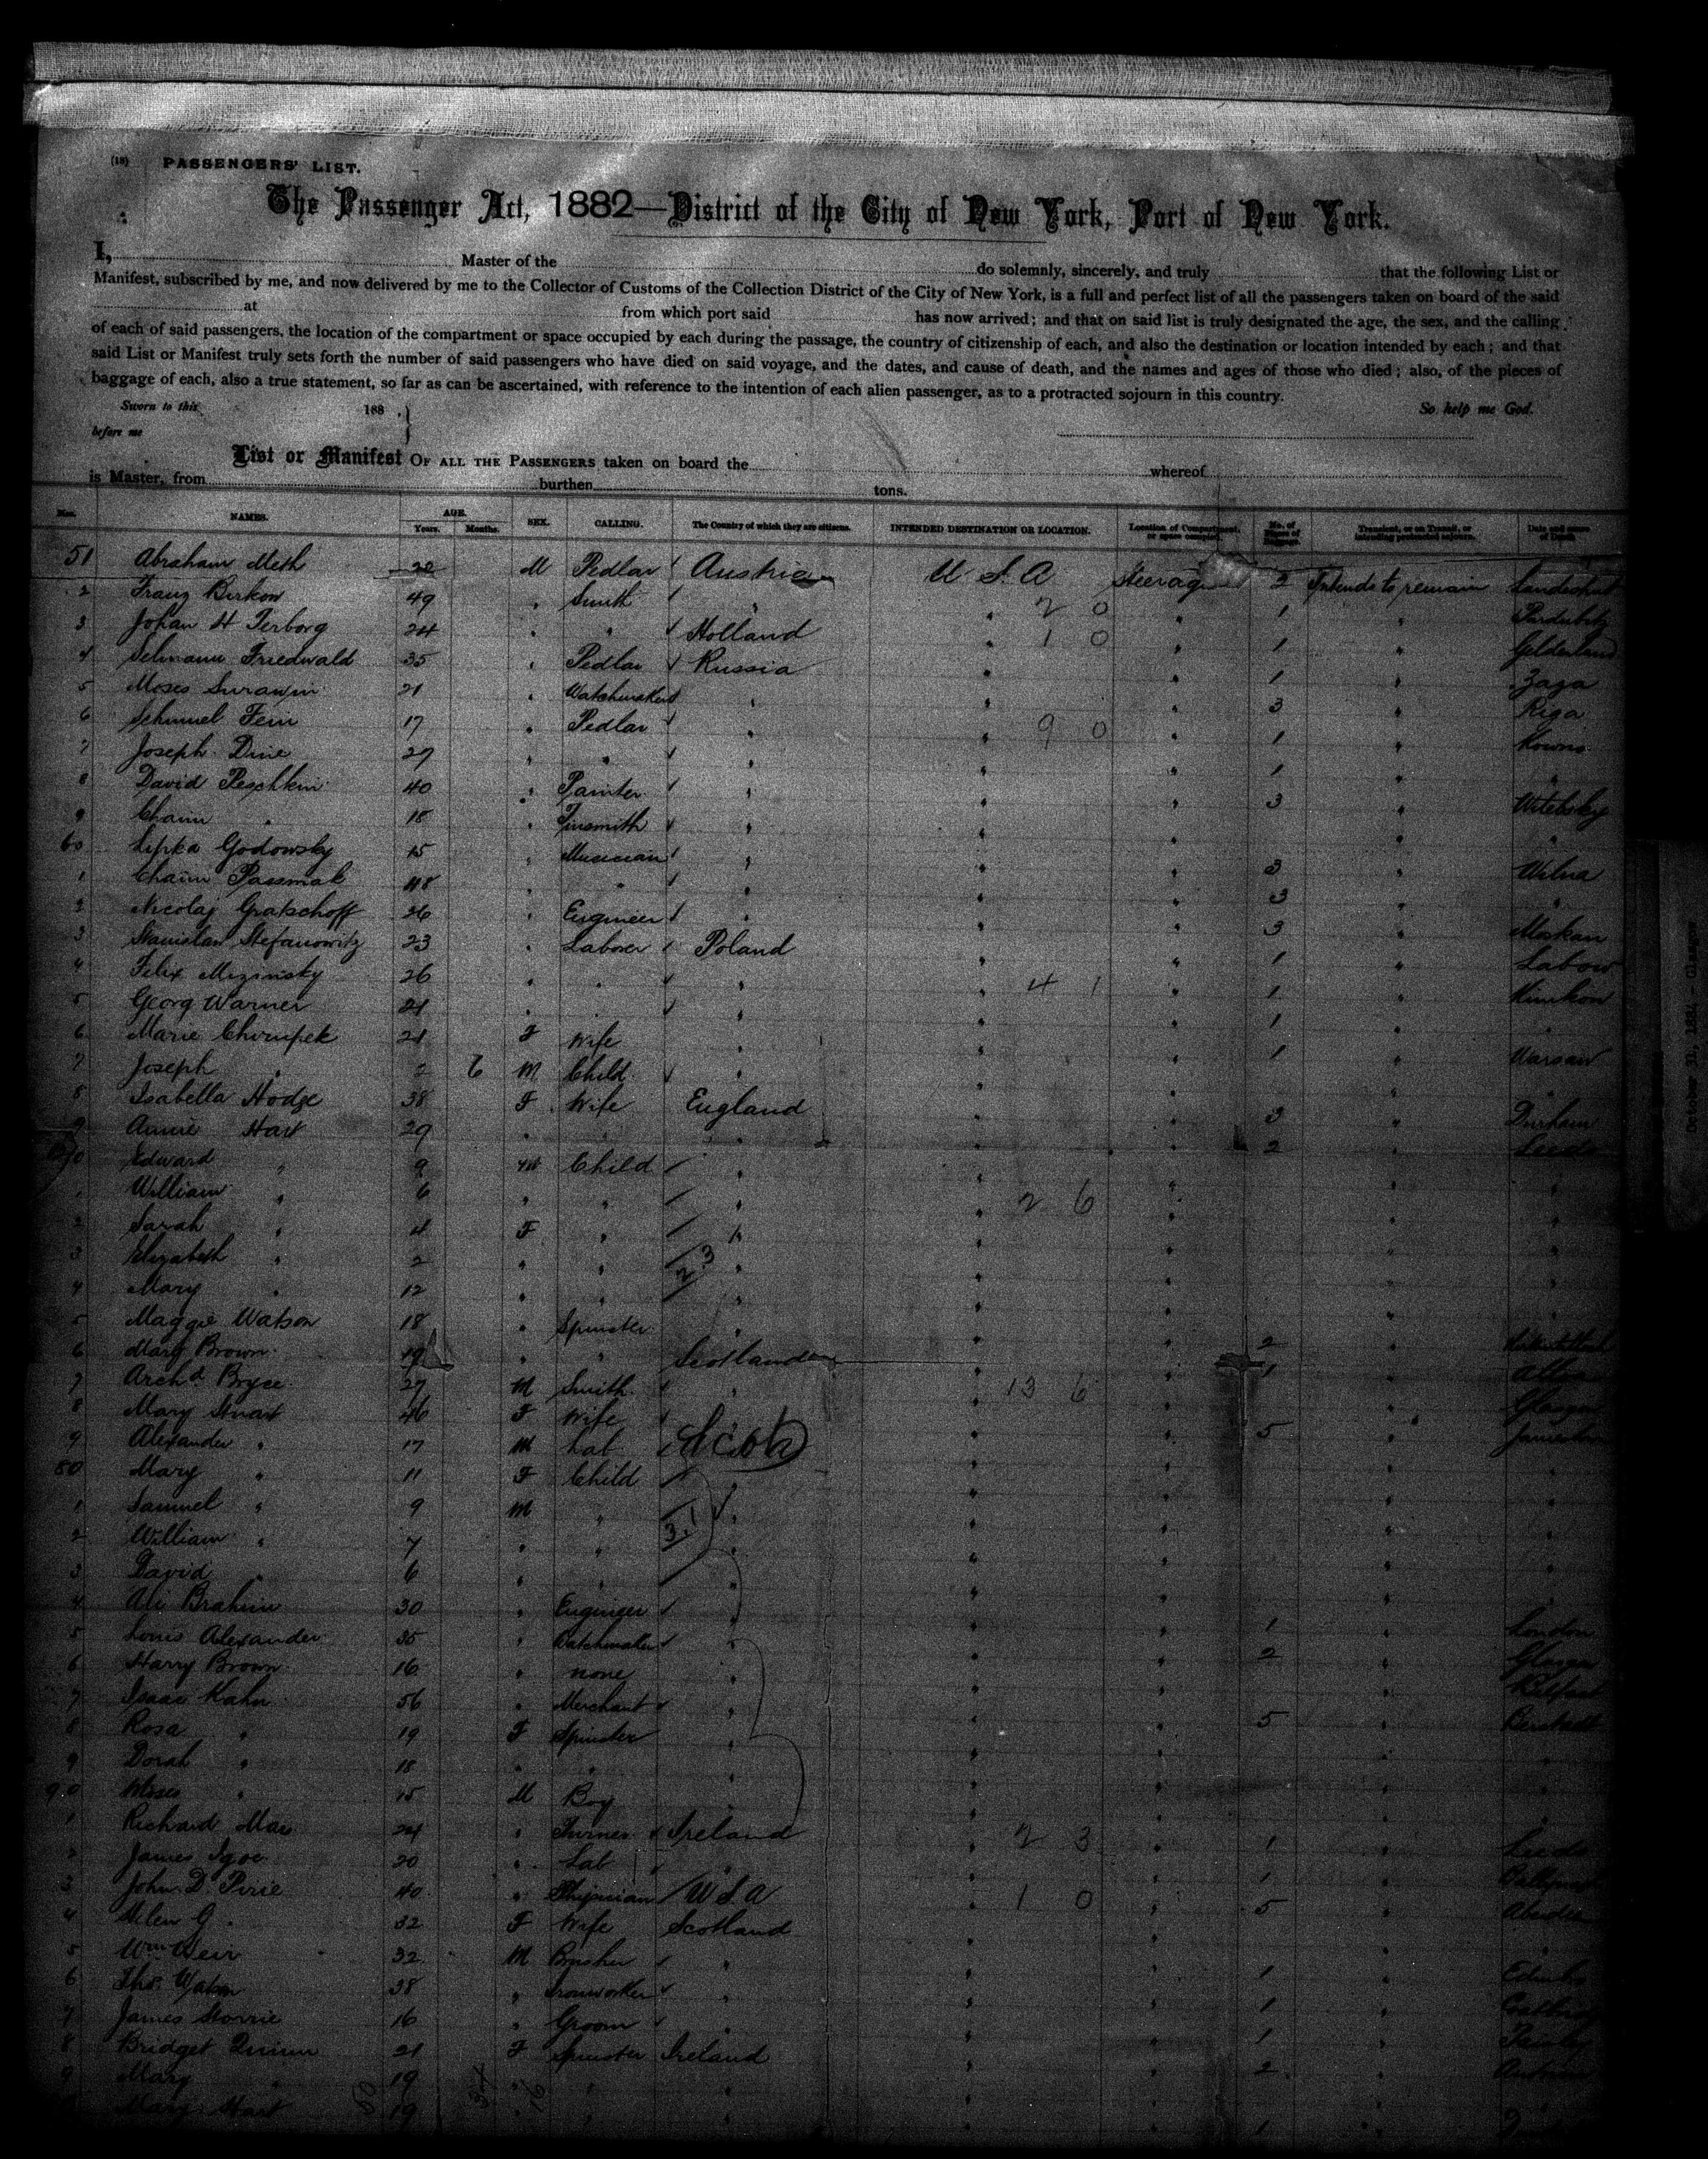 (18) PASSENGERS' LIST.
The Passenger Act, 1882—District of the City of New York, Port of New York.
I, Master of the do solemnly, sincerely, and truly that the following List or
Manifest, subscribed by me, and now delivered by me to the Collector of Customs of the Collection District of the City of New York, is a full and perfect list of all the passengers taken on board of the said
at from which port said has now arrived; and that on said list is truly designated the age, the sex, and the calling
of each of said passengers, the location of the compartment or space occupied by each during the passage, the country of citizenship of each, and also the destination or location intended by each; and that
said List or Manifest truly sets forth the number of said passengers who have died on said voyage, and the dates, and cause of death, and the names and ages of those who died; also, of the pieces of
baggage of each, also a true statement, so far as can be ascertained, with reference to the intention of each alien passenger, as to a protracted sojourn in this country.
Sworn to this 188 . } So help me God.
before me
List or Manifest OF ALL THE PASSENGERS taken on board the whereof
is Master, from burthen tons.
Nos. NAMES. AGE. Years. Months. SEX. CALLING. The Country of which they are citizens. INTENDED DESTINATION OR LOCATION. Location of Compartment, or space occupied. No. of Pieces of Baggage. Transient, or on Transit, or intending protracted sojourn. Date and cause of Death
51 Abraham Meth 22 M Pedlar Austria U.S.A Steerage 2 Intends to remain Landeshut
2 Franz Birkow 49 " Smith " " 2 0 " 1 " Pardubitz
3 Johan H Terborg 24 " " Holland " 1 0 " 1 " Gelderland
4 Selmann Friedwald 35 " Pedlar Russia " " 1 " Zaga
5 Moses Surawin 21 " Watchmaker " " " 3 " Riga
6 Schmuel Fein 17 " Pedlar " " 9 0 " 1 " Kowno
7 Joseph Dine 27 " " " " " 1 " "
8 David Peschkin 40 " Painter " " " 3 " Witebsky
9 Chaim " 18 " Tinsmith " " " " "
60 Lipka Godowsky 15 " Musician " " " 3 " Wilna
1 Chaim Passmak 48 " " " " " 3 " "
2 Nicolaj Gratschoff 26 " Engineer " " " 3 " Moskau
3 Stanislaw Stefanowitz 23 " Laborer Poland " " 1 " Labow
4 Felix Mizinsky 26 " " " " 4 1 " 1 "
5 Georg Warner 21 " " " " " 1 " "
6 Marie Chrupek 21 F Wife " 1 " Warsaw
7 Joseph " 2 6 M Child "
8 Isabella Hodge 38 F Wife England " " 3 " Durham
9 Annie Hart 29 " " " " " 2 " Leeds
70 Edward " 9 M Child " " " "
William " 6 " " " " 2 6 " "
2 Sarah " 4 F " " " " "
3 Elizabeth " 2 " " 2 3 " " " "
4 Mary " 12 " " " " " "
5 Maggie Watson 18 " Spinster " " " 2 "
6 Mary Brown 19 " " Scotland " " 1 " Alloa
7 Archd Bryce 27 M Smith " 13 6 " " Glasgow
8 Mary Stuart 46 F Wife " " 5 " Jamestown
9 Alexander " 17 M Lab Scot " " "
80 Mary " 11 F Child " " " "
1 Samuel " 9 M " " " " "
2 William " 7 " " 3.1 " " " "
3 David " 6 " " " " " "
4 Ali Brahim 30 " Engineer " " 1 " London
5 Louis Alexander 35 " Watchmaker " " " 2 " Glasgow
6 Harry Brown 16 " none " " " " Belfast
7 Isaac Kahn 56 " Merchant " " " 5 "
8 Rosa " 19 F Spinster " " " "
9 Dorah " 18 " " " " " "
90 Moses " 15 M Boy " " " "
1 Richard Mais 24 " Turner Ireland " 2 3 " 1 " Leeds
2 James Igoe 20 " Lab " " " 1 "
3 John D. Pirie 40 " Physician U.S.A " 1 0 " 5 " Aberdeen
4 Helen G. " 32 F Wife Scotland " " "
5 Wm Weir 32 M Brusher " " " 1 " Edinbro
6 Thos Watson 38 " Ironworker " " " 1 "
7 James Storrie 16 " Groom " " " 1 " Paisley
8 Bridget Quinn 21 F Spinster Ireland " " 2 " Antrim
9 Mary " 19 " " " "
Mary Hart 19 " " " 1 "
October 31, 1884 – Glasgow